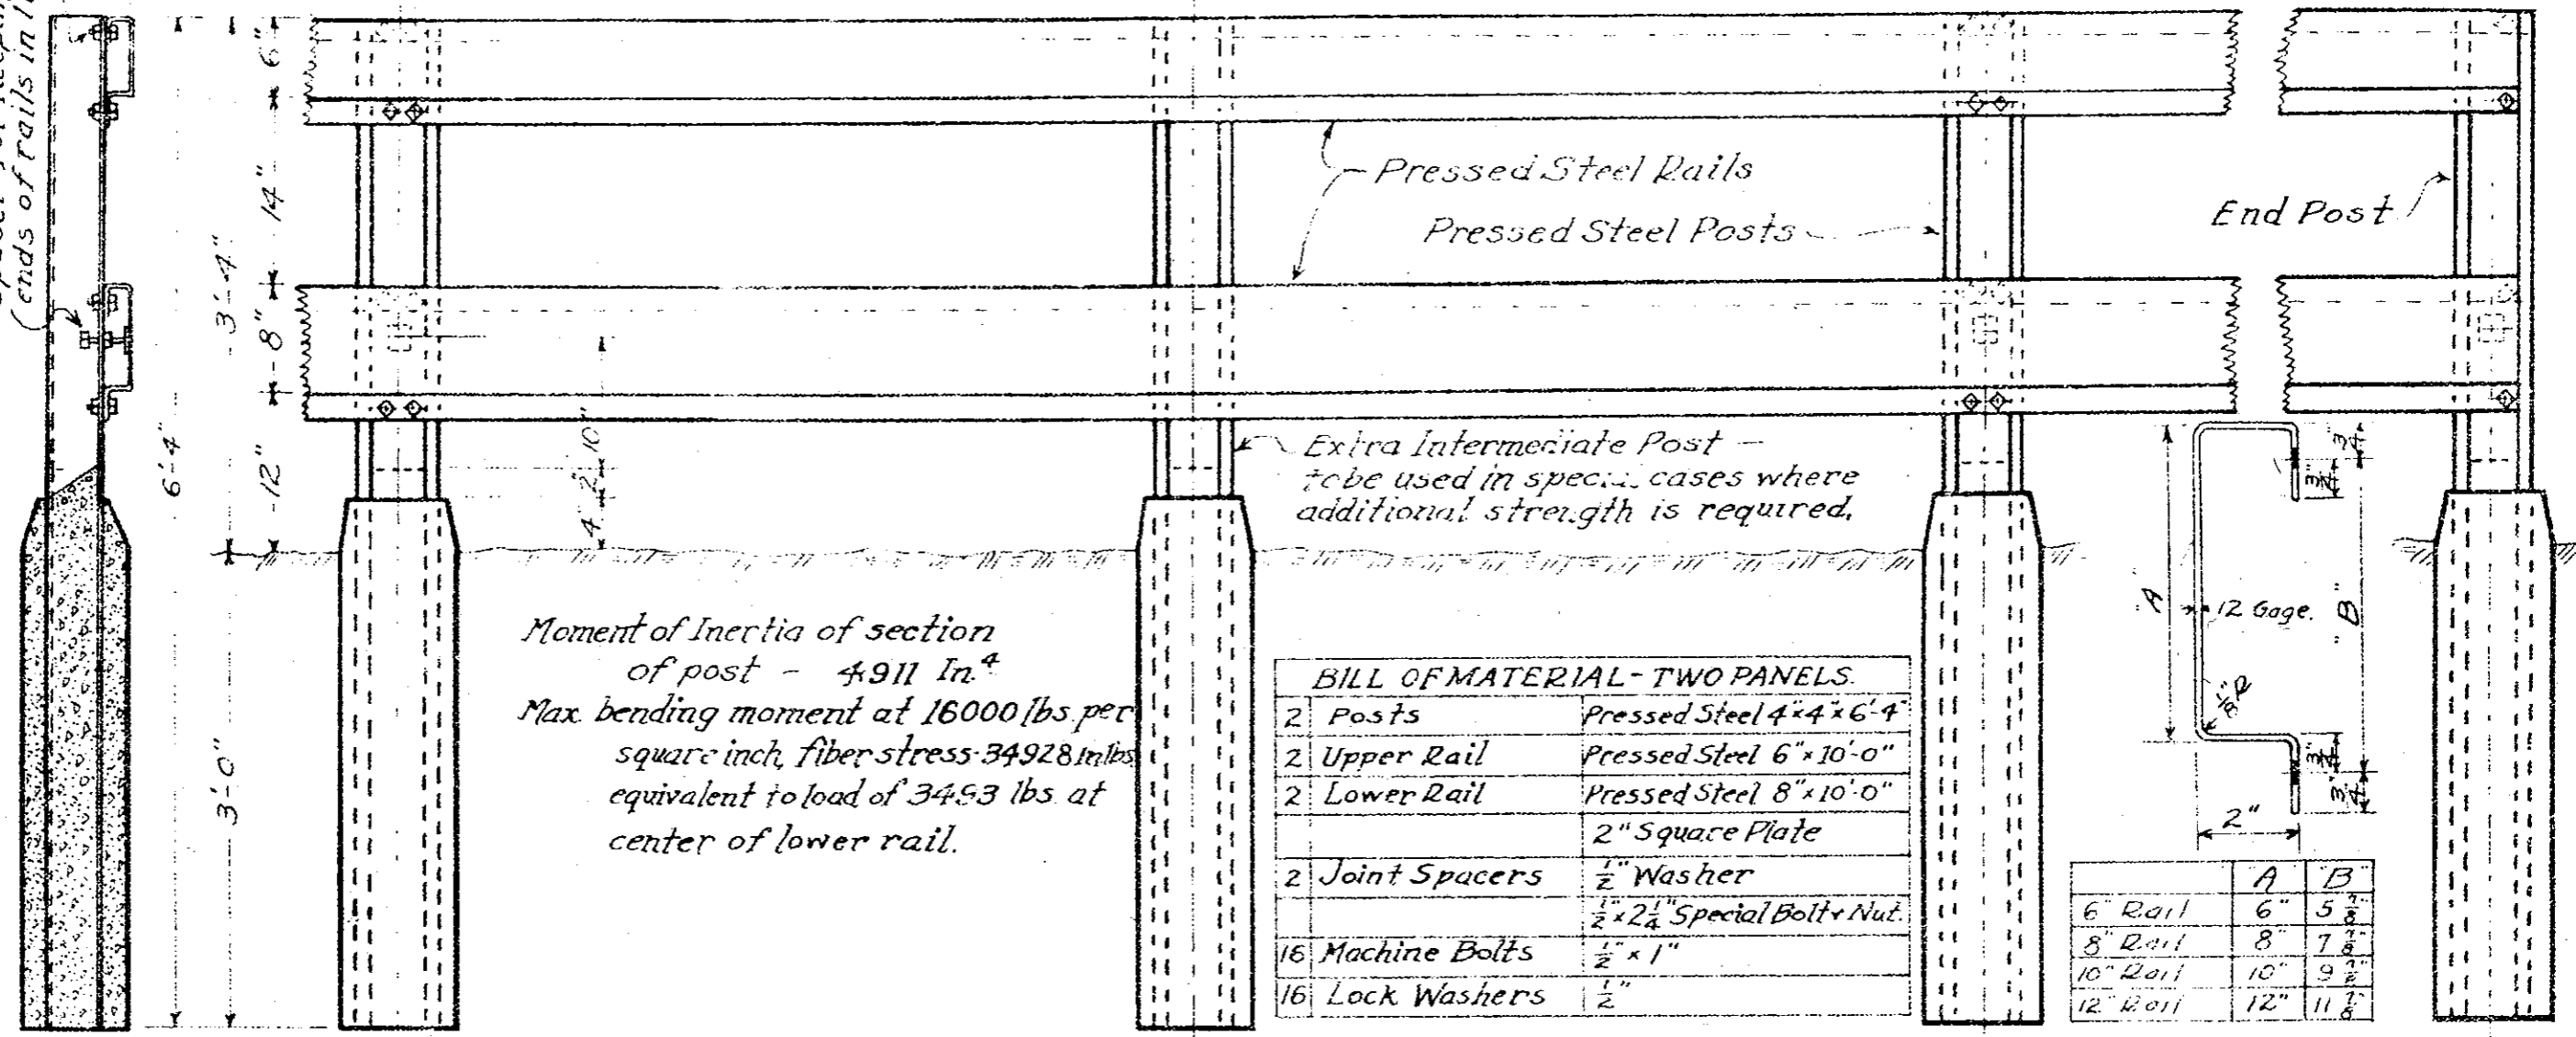 ends of rails in
6"
14"
3'-4"
8"
6'-4"
12"
3'-0"
Pressed Steel Rails
Pressed Steel Posts
End Post
Extra Intermediate Post –
to be used in special cases where
additional strength is required.
Moment of Inertia of section
of post - 4.911 In.⁴
Max. bending moment at 16000 lbs. per
square inch, fiber stress-34928 in lbs
equivalent to load of 3493 lbs. at
center of lower rail.
BILL OF MATERIAL - TWO PANELS.
2 Posts Pressed Steel 4"x4"x6'-4"
2 Upper Rail Pressed Steel 6"x10'-0"
2 Lower Rail Pressed Steel 8"x10'-0"
2" Square Plate
2 Joint Spacers ½" Washer
½"x2¼" Special Bolt & Nut.
16 Machine Bolts ½" x 1"
16 Lock Washers ½"
¾"
¾"
A
12 Gage.
"B"
¾"
¾"
2"
A B
6" Rail 6" 5⅞"
8" Rail 8" 7⅞"
10" Rail 10" 9⅞"
12" Rail 12" 11⅞"